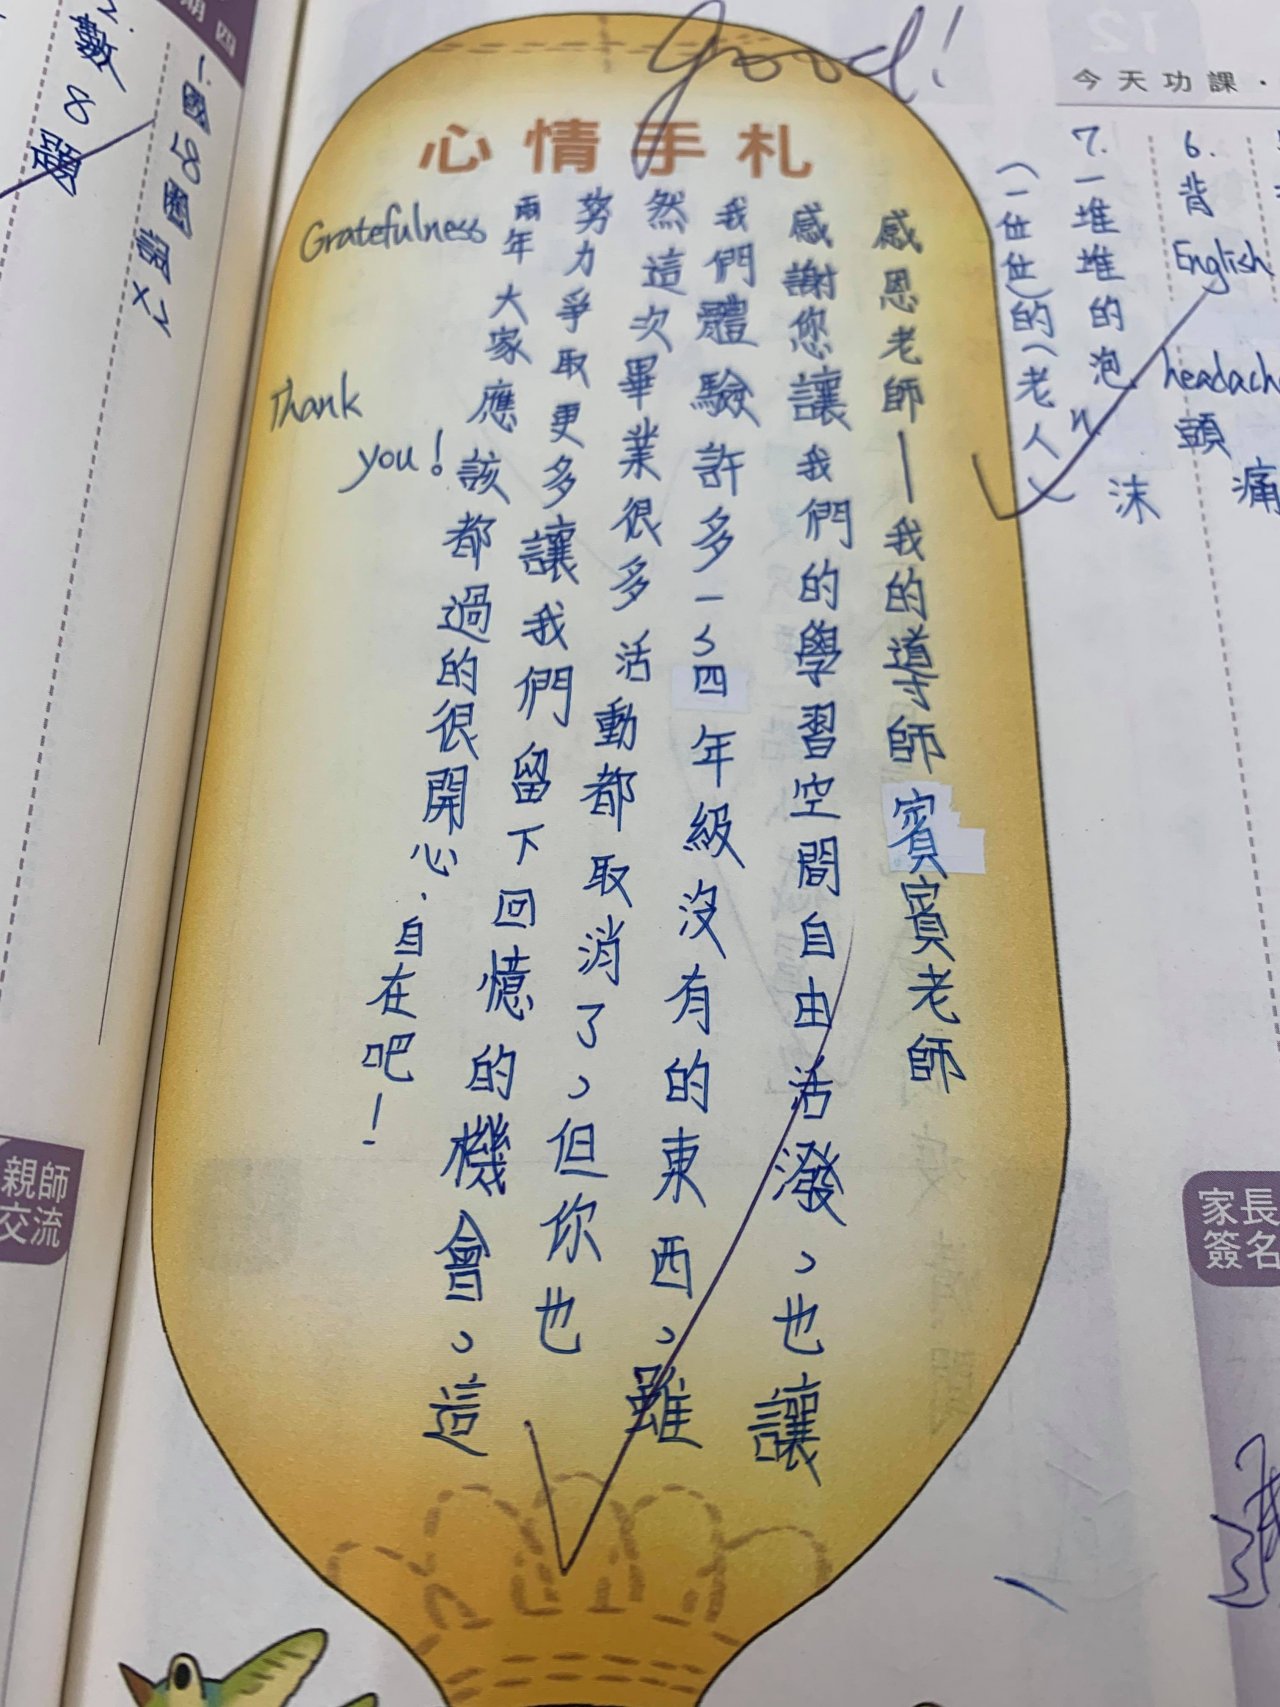 good!
心情手札
感恩老師—我的導師賓賓老師
感謝您讓我們的學習空間自由活潑，也讓
我們體驗許多一~四年級沒有的東西，雖
然這次畢業很多活動都取消了，但你也
努力爭取更多讓我們留下回憶的機會，這
兩年大家應該都過的很開心．自在吧！
Gratefulness
Thank
you!
12
今天功課．
6.背English
headach
頭痛
7.一堆堆的泡沫
(一位位)的(老人)
期四
2.數8題
親師
交流
家長
簽名